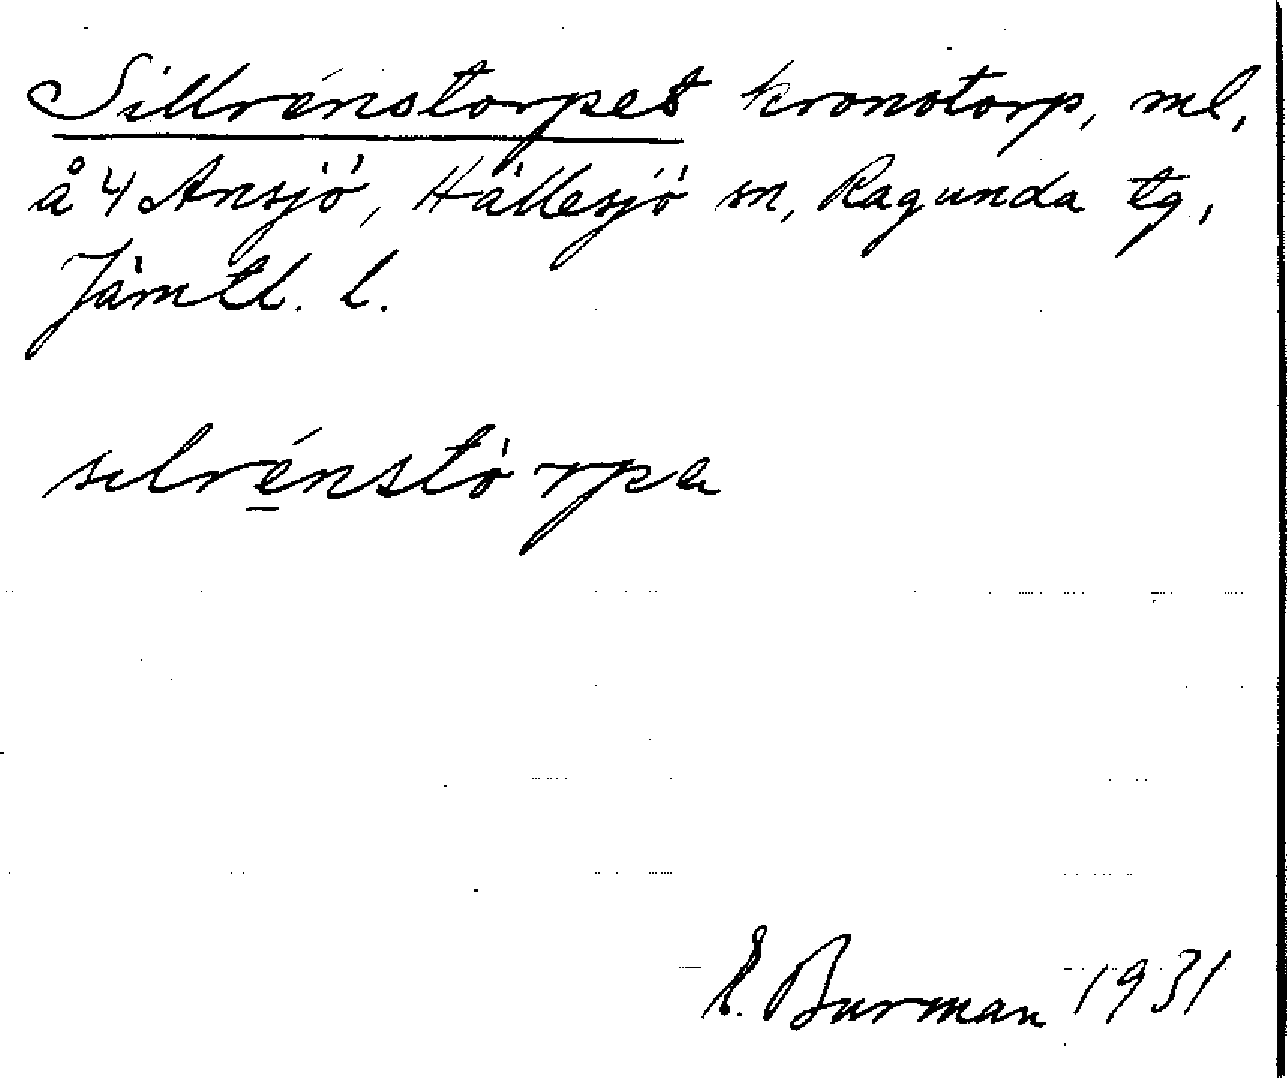 Sillrénstorpet kronotorp, ml,
å 4 Ansjö, Hällesjö sn, Ragunda tg,
Jämtl. l.
sılrénstòrpa
E. Burman 1931